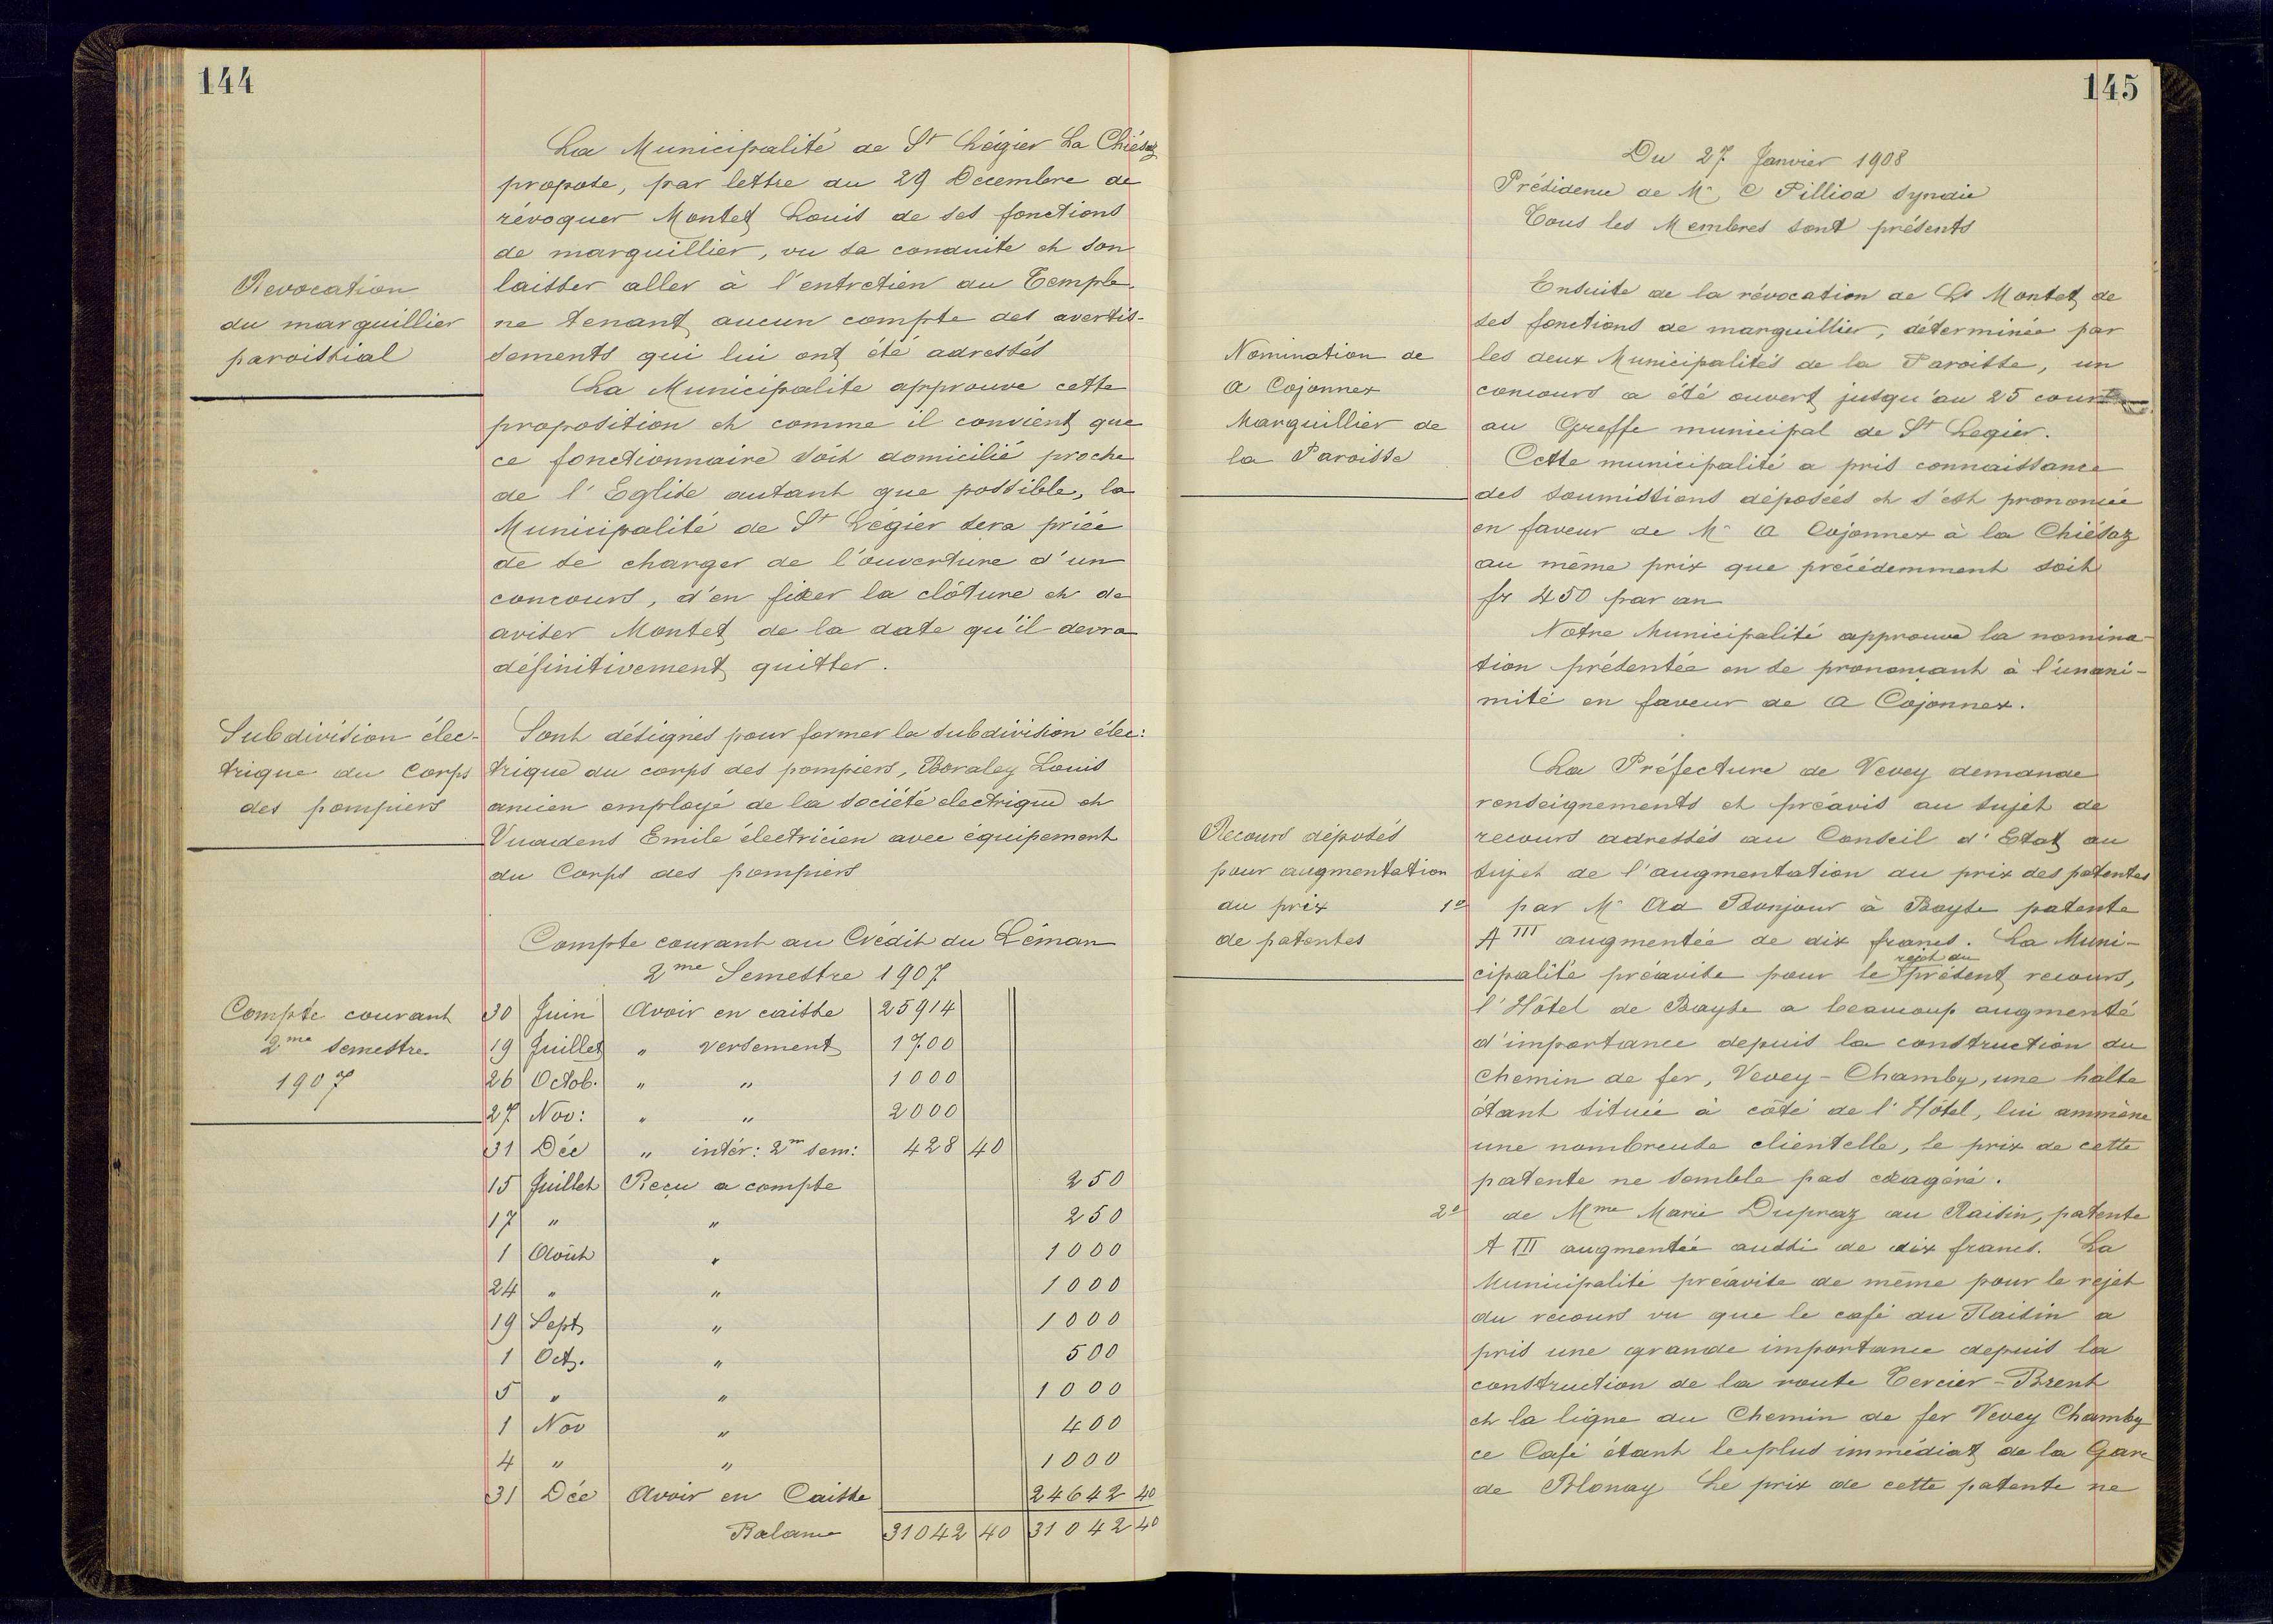 144
La Municipalité de St Légier La Chiésaz
propose, par lettre du 29 Decembre de
révoquer Montet Louis de ses fonctions
de marguillier, vu sa conduite et son
Revocation
du marguillier
paroissial
laisser aller à l'entretien du Temple.
ne tenant aucun compte des avertis-
sements qui lui ont été adressés
La Municipalite approuve cette
proposition et comme il convient que
ce fonctionnaire soit domicilié proche
de l'Eglise autant que possible, la
Municipalité de St Légier sera priée
de se charger de l'ouverture d'un
concours, d'en fixer la clôture et de
aviser Montet de la date qu'il devra
définitivement quitter.
Subdivision élec-
trique du Corps
des pompiers
Sont désignés pour former la subdivision élec:
trique du corps des pompiers, Boraley Louis
ancien employé de la société electrique et
Vuadens Emile électricien avec équipement
du Corps des pompiers
Compte courant au Crédit du Léman
2me Semestre 1907
Compte courant
2me semestre
1907
30 Juin Avoir en caisse 25914
19 Juillet " versement 1700
26 Octob. " " 1000
27 Nov: " " 2000
31 Déc " intér: 2m sem: 428 40
15 Juillet Reçu a compte 250
17 " " 250
1 Août " 1000
24 " " 1000
19 Sept " 1000
1 Oct. " 500
5 " " 1000
1 Nov " 400
4 " " 1000
31 Déc Avoir en Caisse 24642 40
Balance 31042 40 31042 40
145
Du 27 Janvier 1908
Présidence de Mr C Pilliod Syndic
Tous les Membres sont présents
Ensuite de la révocation de Ls Montet de
ses fonctions de marguillier, déterminée par
Nomination de
A Cojonnex
Marguillier de
la Paroisse
les deux Municipalités de la Paroisse, un
concours a été ouvert jusqu'au 25 court
au Greffe municipal de St Legier.
Cette municipalité a pris connaissance
des soumissions déposées et s'est prononcée
en faveur de Mr A Cojonnex à la Chiésaz
au même prix que précédemment soit
fr 450 par an
Notre Municipalité approuve la nomina-
tion présentée en se prononçant à l'unani-
mité en faveur de A Cojonnex.
La Préfecture de Vevey demande
renseignements et préavis au sujet de
Recours déposés
pour augmentation
du prix
de patentes
recours adressés au Conseil d'Etat au
sujet de l'augmentation du prix des patentes
1o par Mr Ad Bonjour à Bayse patente
A III augmentée de dix francs. La Muni-
rejet du
cipalité préavise pour le présent recours,
l'Hôtel de Bayse a beaucoup augmenté
d'importance depuis la construction du
Chemin de fer, Vevey-Chamby, une halte
étant située à côté de l'Hôtel, lui ammène
une nombreuse clientelle, le prix de cette
patente ne semble pas exagéré.
2o de Mme Marie Dupraz au Raisin, patente
A III augmentée aussi de dix francs. La
Municipalité préavise de même pour le rejet
du recours vu que le café du Raisin a
pris une grande importance depuis la
construction de la route Tercier-Brent
et la ligne du Chemin de fer Vevey Chamby
ce Café étant le plus immédiat de la Gare
de Blonay Le prix de cette patente ne